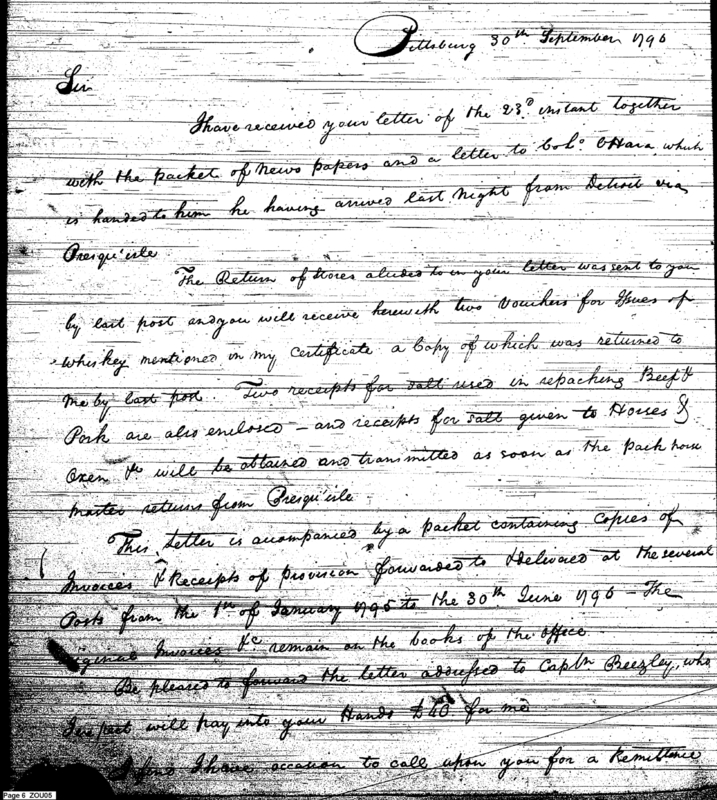 Pittsburg 30th September 1796
Sir
I have received your letter of the 23d instant together
with the packet of News papers and a letter to Colo. OHara which
is handed to him he having arrived last Night from Detroit via
Presqu'isle
The Return of Stores aluded to in your letter was sent to you
by last post and you will receive herewith two Vouchers for Issues of
Whiskey mentioned in my Certificate a Copy of which was returned to
me by last post. Two receipts for salt used in repacking Beef &
Pork are also enclosed – and receipts for salt given to Horses &
Oxen &c will be obtained and transmitted as soon as the Pack horse
Master returns from Presqu'isle –
This Letter is acompanied by a packet containing Copies of
Invoices & Receipts of Provision forwarded to & delivered at the several
Posts from the 1st of January 1795 to the 30th June 1796 – The
original Invoices &c remain on the books of the Office
Be pleased to forward the letter addressed to Captn Beezley, who
I expect will pay into your Hands for me
I find I have occasion to call upon you for a Remittance
Page 6 ZOU05